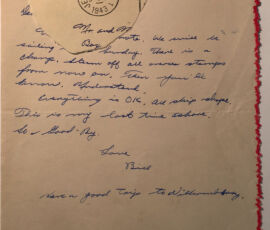 De
1943
Mr and M
note. We will be
sailing Sunday. There is a
change. Steam off all over stamps
from now on. Then you'll
know. Understand.
Everything is OK, all ship shape.
This is my last time ashore.
So - Good-By.
Love
Bill
Have a good trip to Williamsburg.